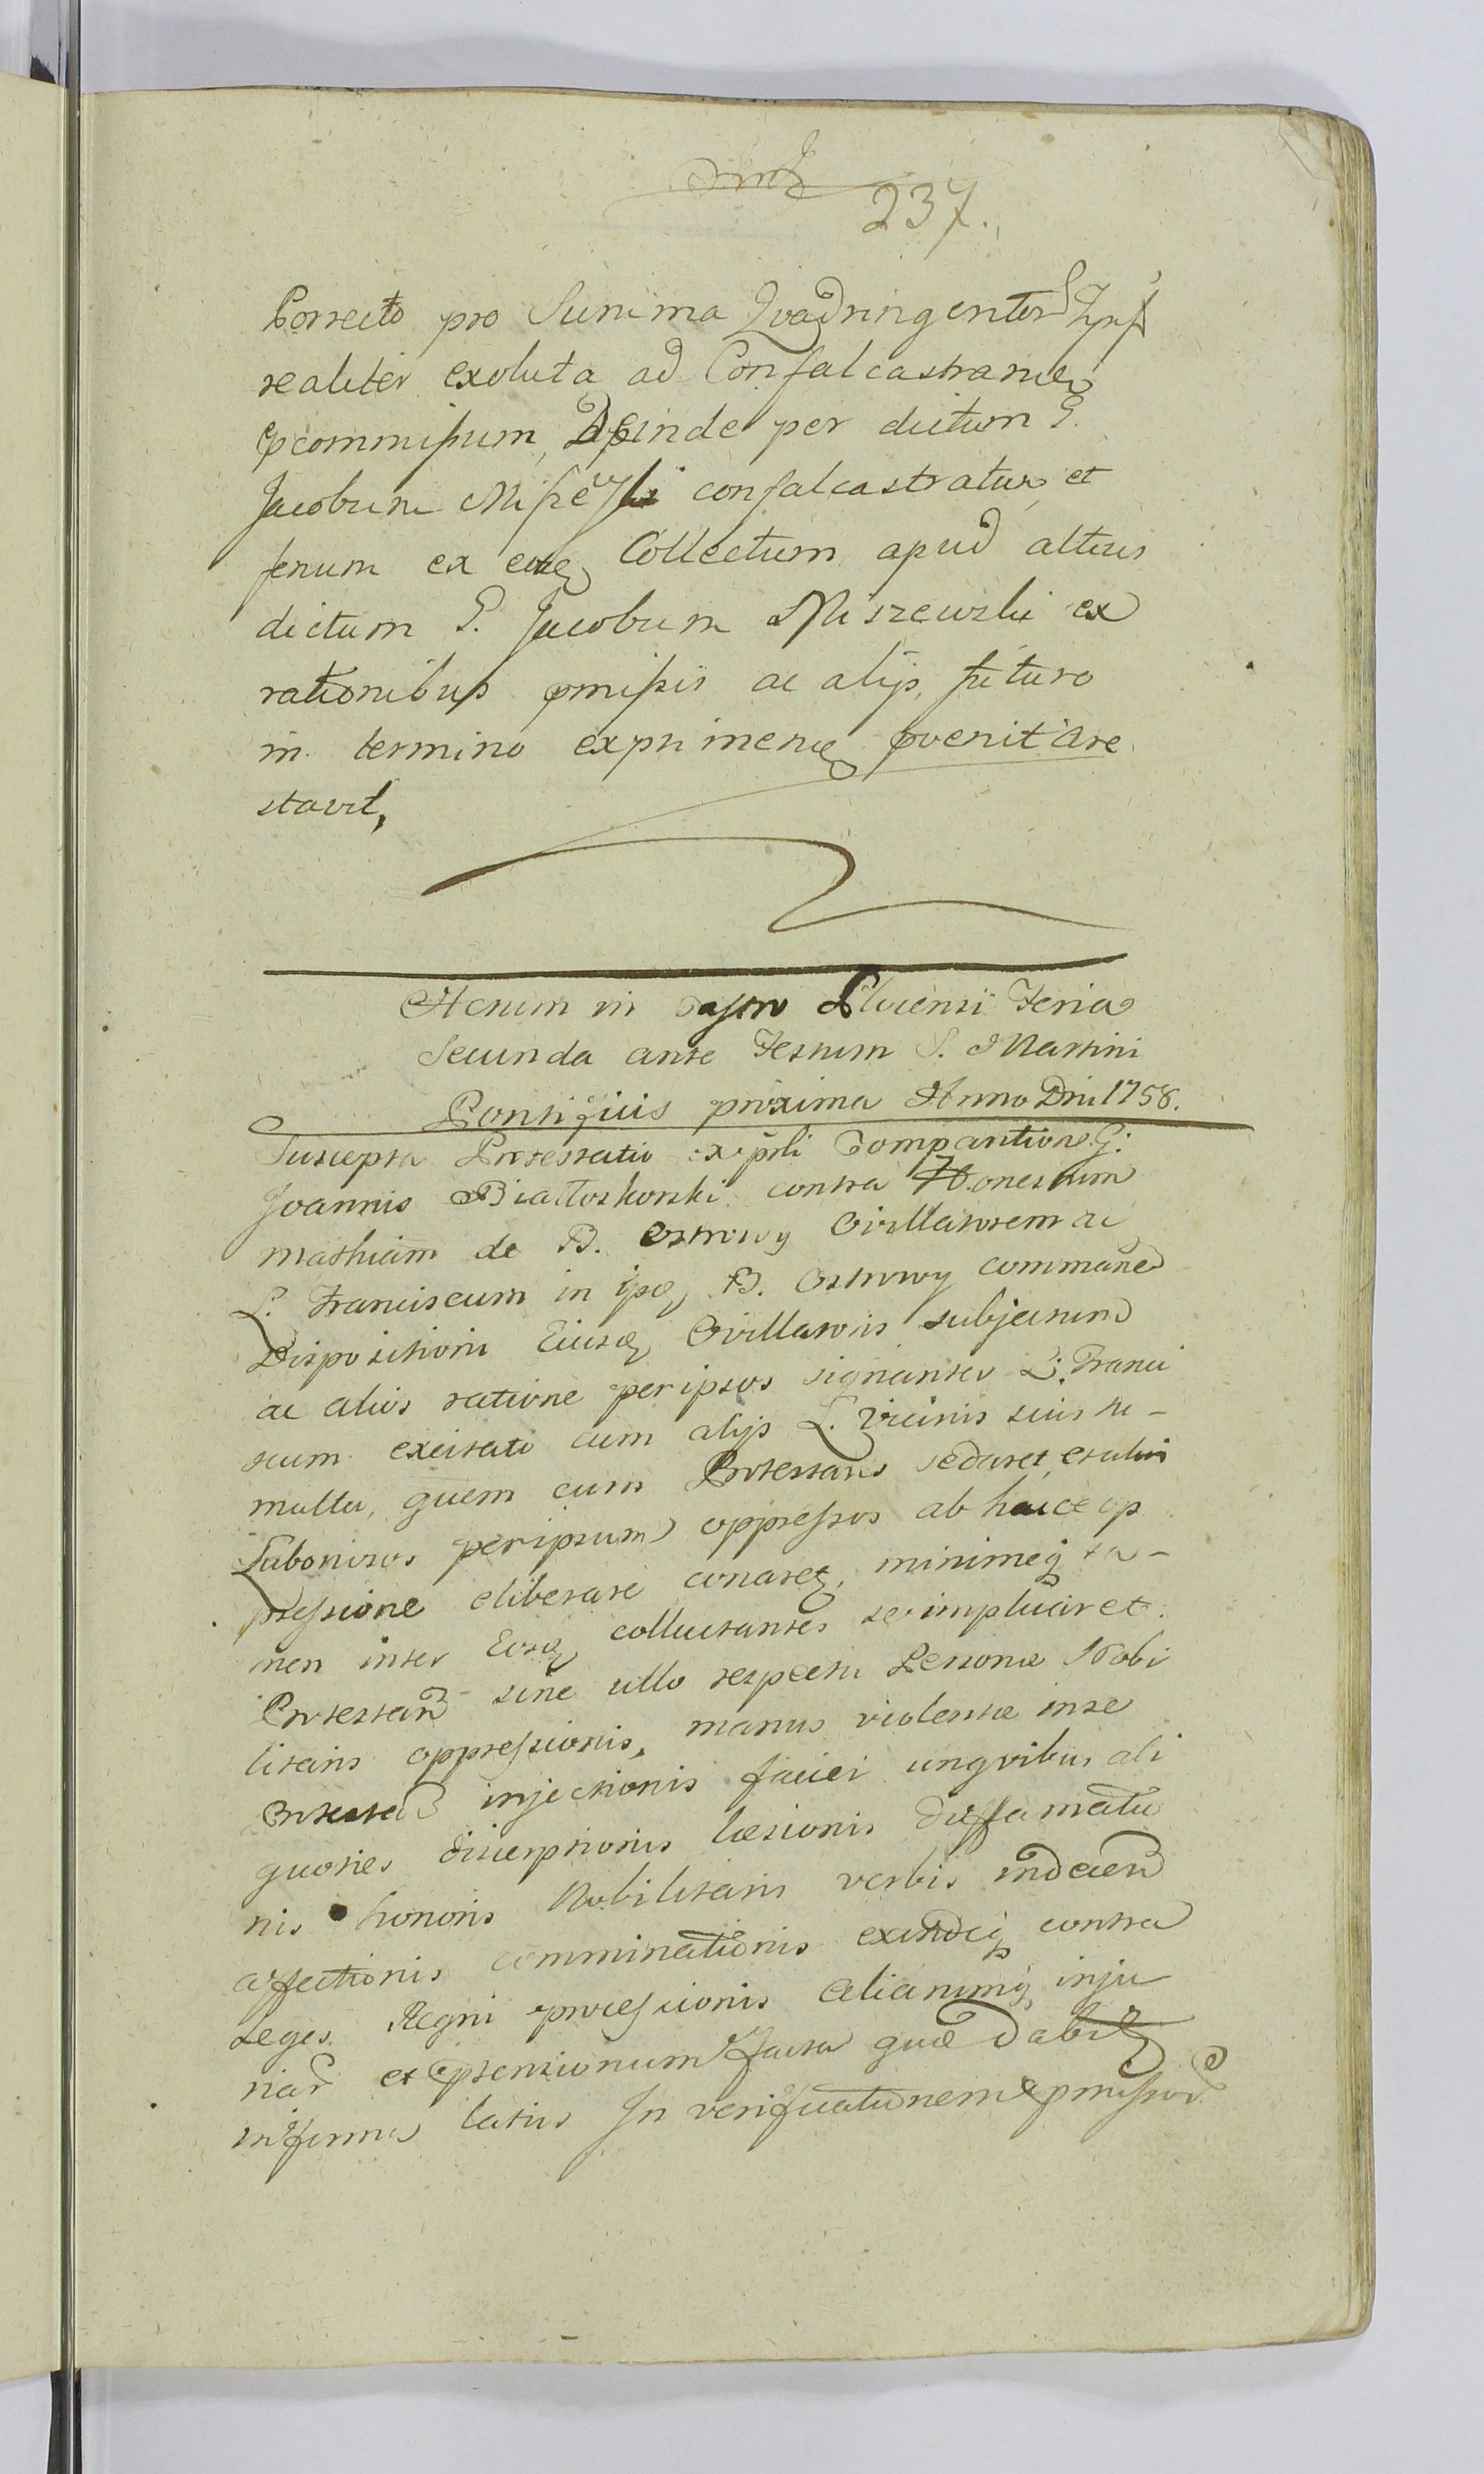 237.
Porrecto pro Summa Quadringentor
realiter exoluta ad Confalcastrand
commissum, Deinde per dictum G.
Jacobum confalcastratur et
fenum ex eodq Collectum apud alterus
dictum G. Jacobum Miszewski ex
rationibus pmissis ac alijs, futuro
in termino exprimend pvenit are
stavit,
Actum in Castro Plocensi Feria
Secunda ante Festum S. Martini
Pontificis proxima Anno Dni 1758.
Suscepta Protestatio ex prli Compartione G:
Joannis Białoskorski contra Honestum
Mathiam de B. Ostrowy Civillatorem ac
L. Franciscum in ipsa B. Ostrowy command
Dispositioni Eiusd Civillatoris subjectum
ac alios ratione per ipsos signanter L. Franci
scum excitati cum alijs L. Vicinis suis tu-
multu, quem cum Protestans sedaret, et alios
Laboriosos per ipsum oppressos ab hacce op
pressione eliberare conaretq minimeq ta-
men inter Eosd colluctantes se implicaret.
Protestand sine ullo respectu Personae Nobi
litaris oppressionis, manus violentae in se
Protestand injectionis faciei ungvibus ali
quoties discerptionis laesionis diffamatio
nis honoris Nobilitaris verbis indecend
affectionis comminationis exindeq contra
Leges Regni processionis aliarumq inju
riar et ptensionum facta quae dabitq
in forma latius In verificationem pmissor